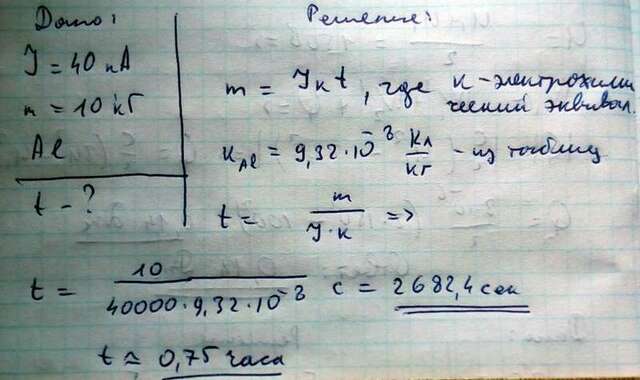 Дано:
J = 40 кА
m = 10 кг
Al
t - ?
Решение:
m = Jкt, где к - электрохими
ческий эквивал.
кAl = 9,32·10⁻⁸ Кл/кг - из таблиц
t = m/(J·к) =>
t = 10/(40000·9,32·10⁻⁸) с = 2682,4 сек
t ≈ 0,75 часа